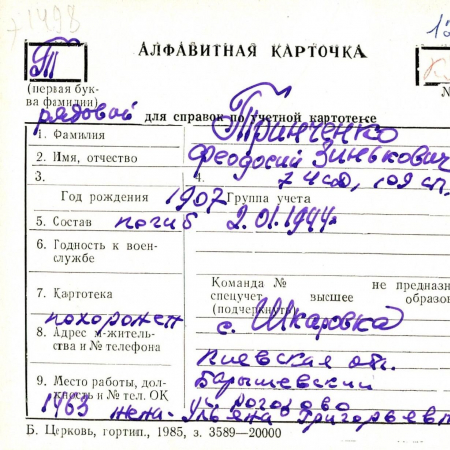 +1498
АЛФАВИТНАЯ КАРТОЧКА
Т
(первая бук-
ва фамилии)
№
рядовой для справок по учетной картотеке
1. Фамилия Тринченко
2. Имя, отчество Феодосий Зинькович
3. 4. 74 сд, 109 сп,
Год рождения 1907 Группа учета
5. Состав погиб 2.01.1944г
6. Годность к воен-
службе
Команда № не предназн
7. Картотека спецучет, высшее образов
(подчеркнуть)
похоронен с. Шкаровка
8. Адрес м-житель-
ства и № телефона
Киевская отл.
9. Место работы, дол- Барышевский
жность и № тел. ОК с. Рогозово
1463 жена - Ульяна Григорьевн
Б. Церковь, гортип., 1985, з. 3589—20000